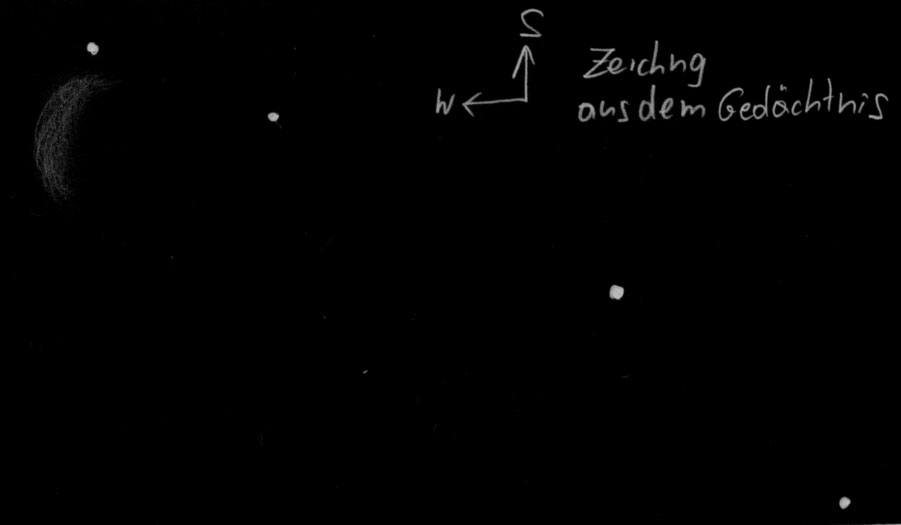 S
W
Zeichng
aus dem Gedächtnis